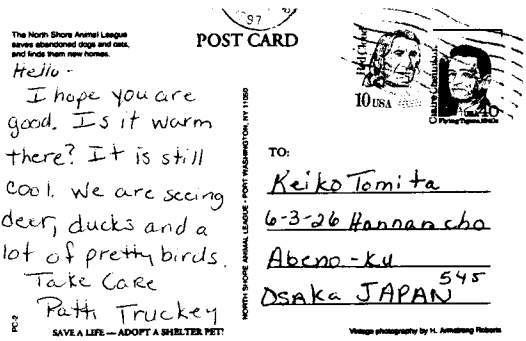 The North Shore Animal League
saves abandoned dogs and cats,
and finds them new homes.
Hello -
I hope you are
good. Is it warm
there? It is still
cool. We are seeing
deer, ducks and a
lot of pretty birds.
Take Care
Patti Truckey
PC-2
SAVE A LIFE — ADOPT A SHELTER PET!
NORTH SHORE ANIMAL LEAGUE - PORT WASHINGTON, NY 11050
POST CARD
97
Red Cloud
10 USA
Claire Chennault
USA 40
Flying Tigers, 1940s
TO:
Keiko Tomita
6-3-26 Hannancho
Abeno-Ku
Osaka JAPAN 545
Vintage photography by H. Armstrong Roberts